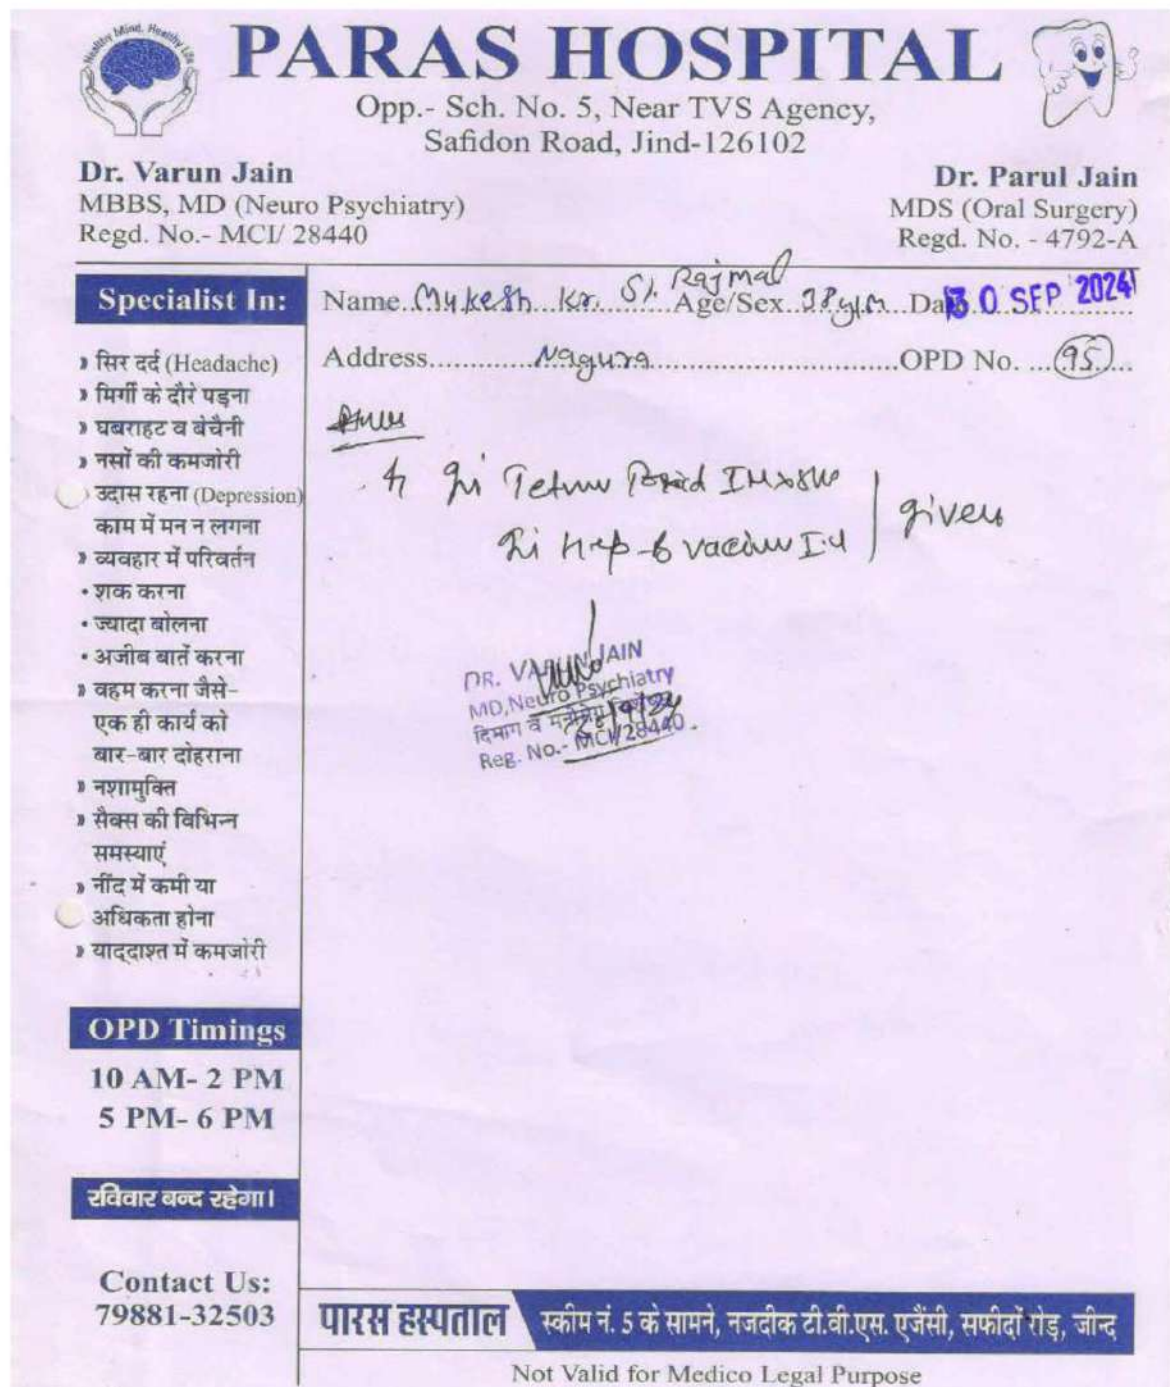 Healthy Mind, Healthy Life
PARAS HOSPITAL
Opp.- Sch. No. 5, Near TVS Agency,
Safidon Road, Jind-126102
Dr. Varun Jain
MBBS, MD (Neuro Psychiatry)
Regd. No.- MCI/ 28440
Dr. Parul Jain
MDS (Oral Surgery)
Regd. No. - 4792-A
Specialist In:
» सिर दर्द (Headache)
» मिर्गी के दौरे पड़ना
» घबराहट व बेचैनी
» नसों की कमजोरी
उदास रहना (Depression)
काम में मन न लगना
» व्यवहार में परिवर्तन
• शक करना
• ज्यादा बोलना
• अजीब बातें करना
» वहम करना जैसे-
एक ही कार्य को
बार-बार दोहराना
» नशामुक्ति
» सैक्स की विभिन्न
समस्याएं
» नींद में कमी या
अधिकता होना
» याद्दाश्त में कमजोरी
OPD Timings
10 AM- 2 PM
5 PM- 6 PM
रविवार बन्द रहेगा।
Contact Us:
79881-32503
Name Mukesh Kr. S/. Rajmal Age/Sex 38y/M Da 30 SEP 2024
Address Nagura OPD No. 95
Hep-b vaccine
given
DR. VARUN JAIN
MD, Neuro Psychiatry
दिमाग व
Reg. No.- MCI/28440
पारस हस्पताल
स्कीम नं. 5 के सामने, नजदीक टी.वी.एस. एजैंसी, सफीदों रोड़, जीन्द
Not Valid for Medico Legal Purpose